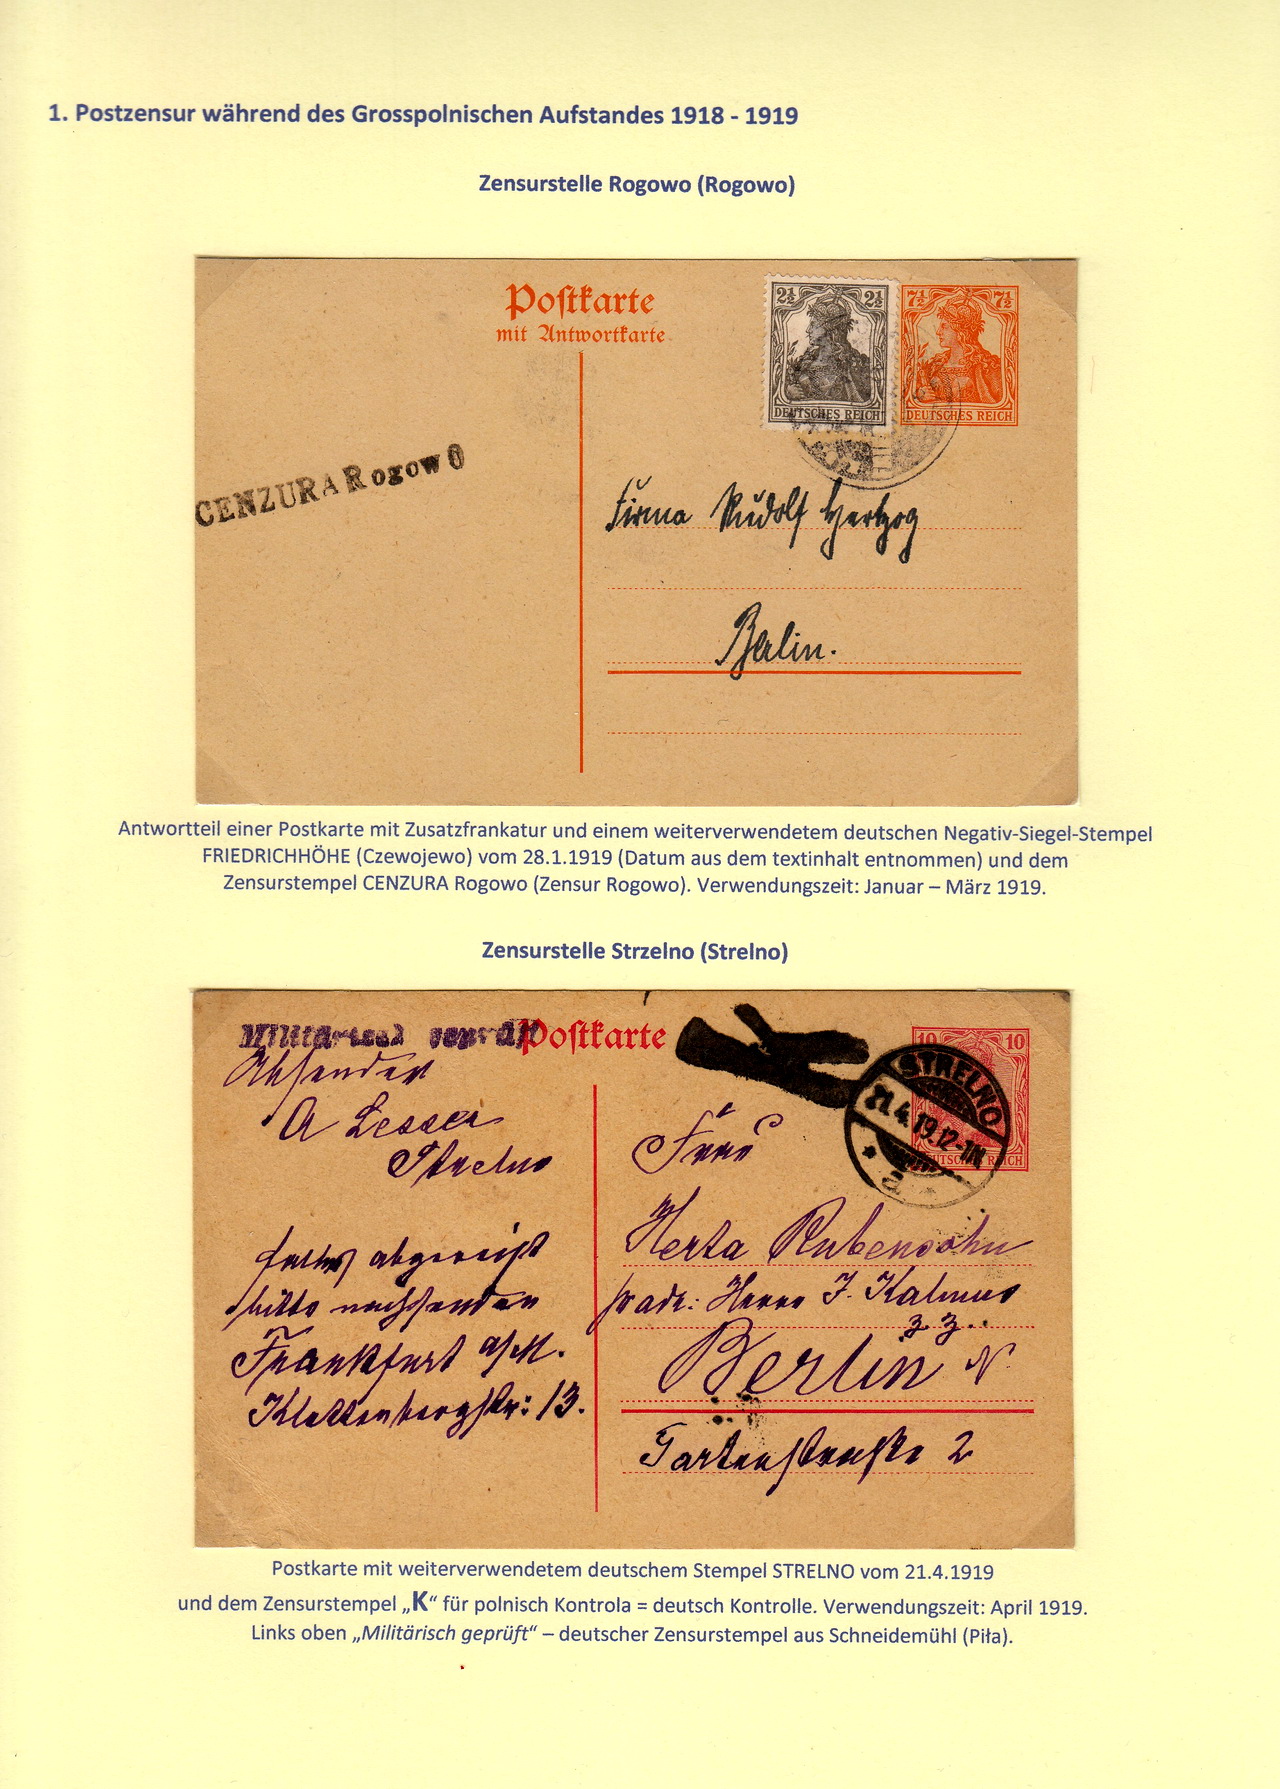 1. Postzensur während des Grosspolnischen Aufstandes 1918 - 1919
Zensurstelle Rogowo (Rogowo)
Postkarte
mit Antwortkarte
2½ 2½
DEUTSCHES REICH
7½ 7½
DEUTSCHES REICH
CENZURA Rogow0
Firma Rudolf Hertzog
Berlin.
Antwortteil einer Postkarte mit Zusatzfrankatur und einem weiterverwendetem deutschen Negativ-Siegel-Stempel
FRIEDRICHHÖHE (Czewojewo) vom 28.1.1919 (Datum aus dem textinhalt entnommen) und dem
Zensurstempel CENZURA Rogowo (Zensur Rogowo). Verwendungszeit: Januar – März 1919.
Zensurstelle Strzelno (Strelno)
Militärisch geprüft
Postkarte
K
10 10
DEUTSCHES REICH
STRELNO
21.4.19.12-1N
a
Absender
A Lesser
Strelno
falls abgereist
bitte nachsenden
Frankfurt a/M.
Klettenbergstr: 13.
Frau
Herta Rubensohn
p adr: Herrn J. Kalmus
z. Z..
Berlin N.
Gartenstraße 2
Postkarte mit weiterverwendetem deutschem Stempel STRELNO vom 21.4.1919
und dem Zensurstempel „K“ für polnisch Kontrola = deutsch Kontrolle. Verwendungszeit: April 1919.
Links oben „Militärisch geprüft“ – deutscher Zensurstempel aus Schneidemühl (Piła).